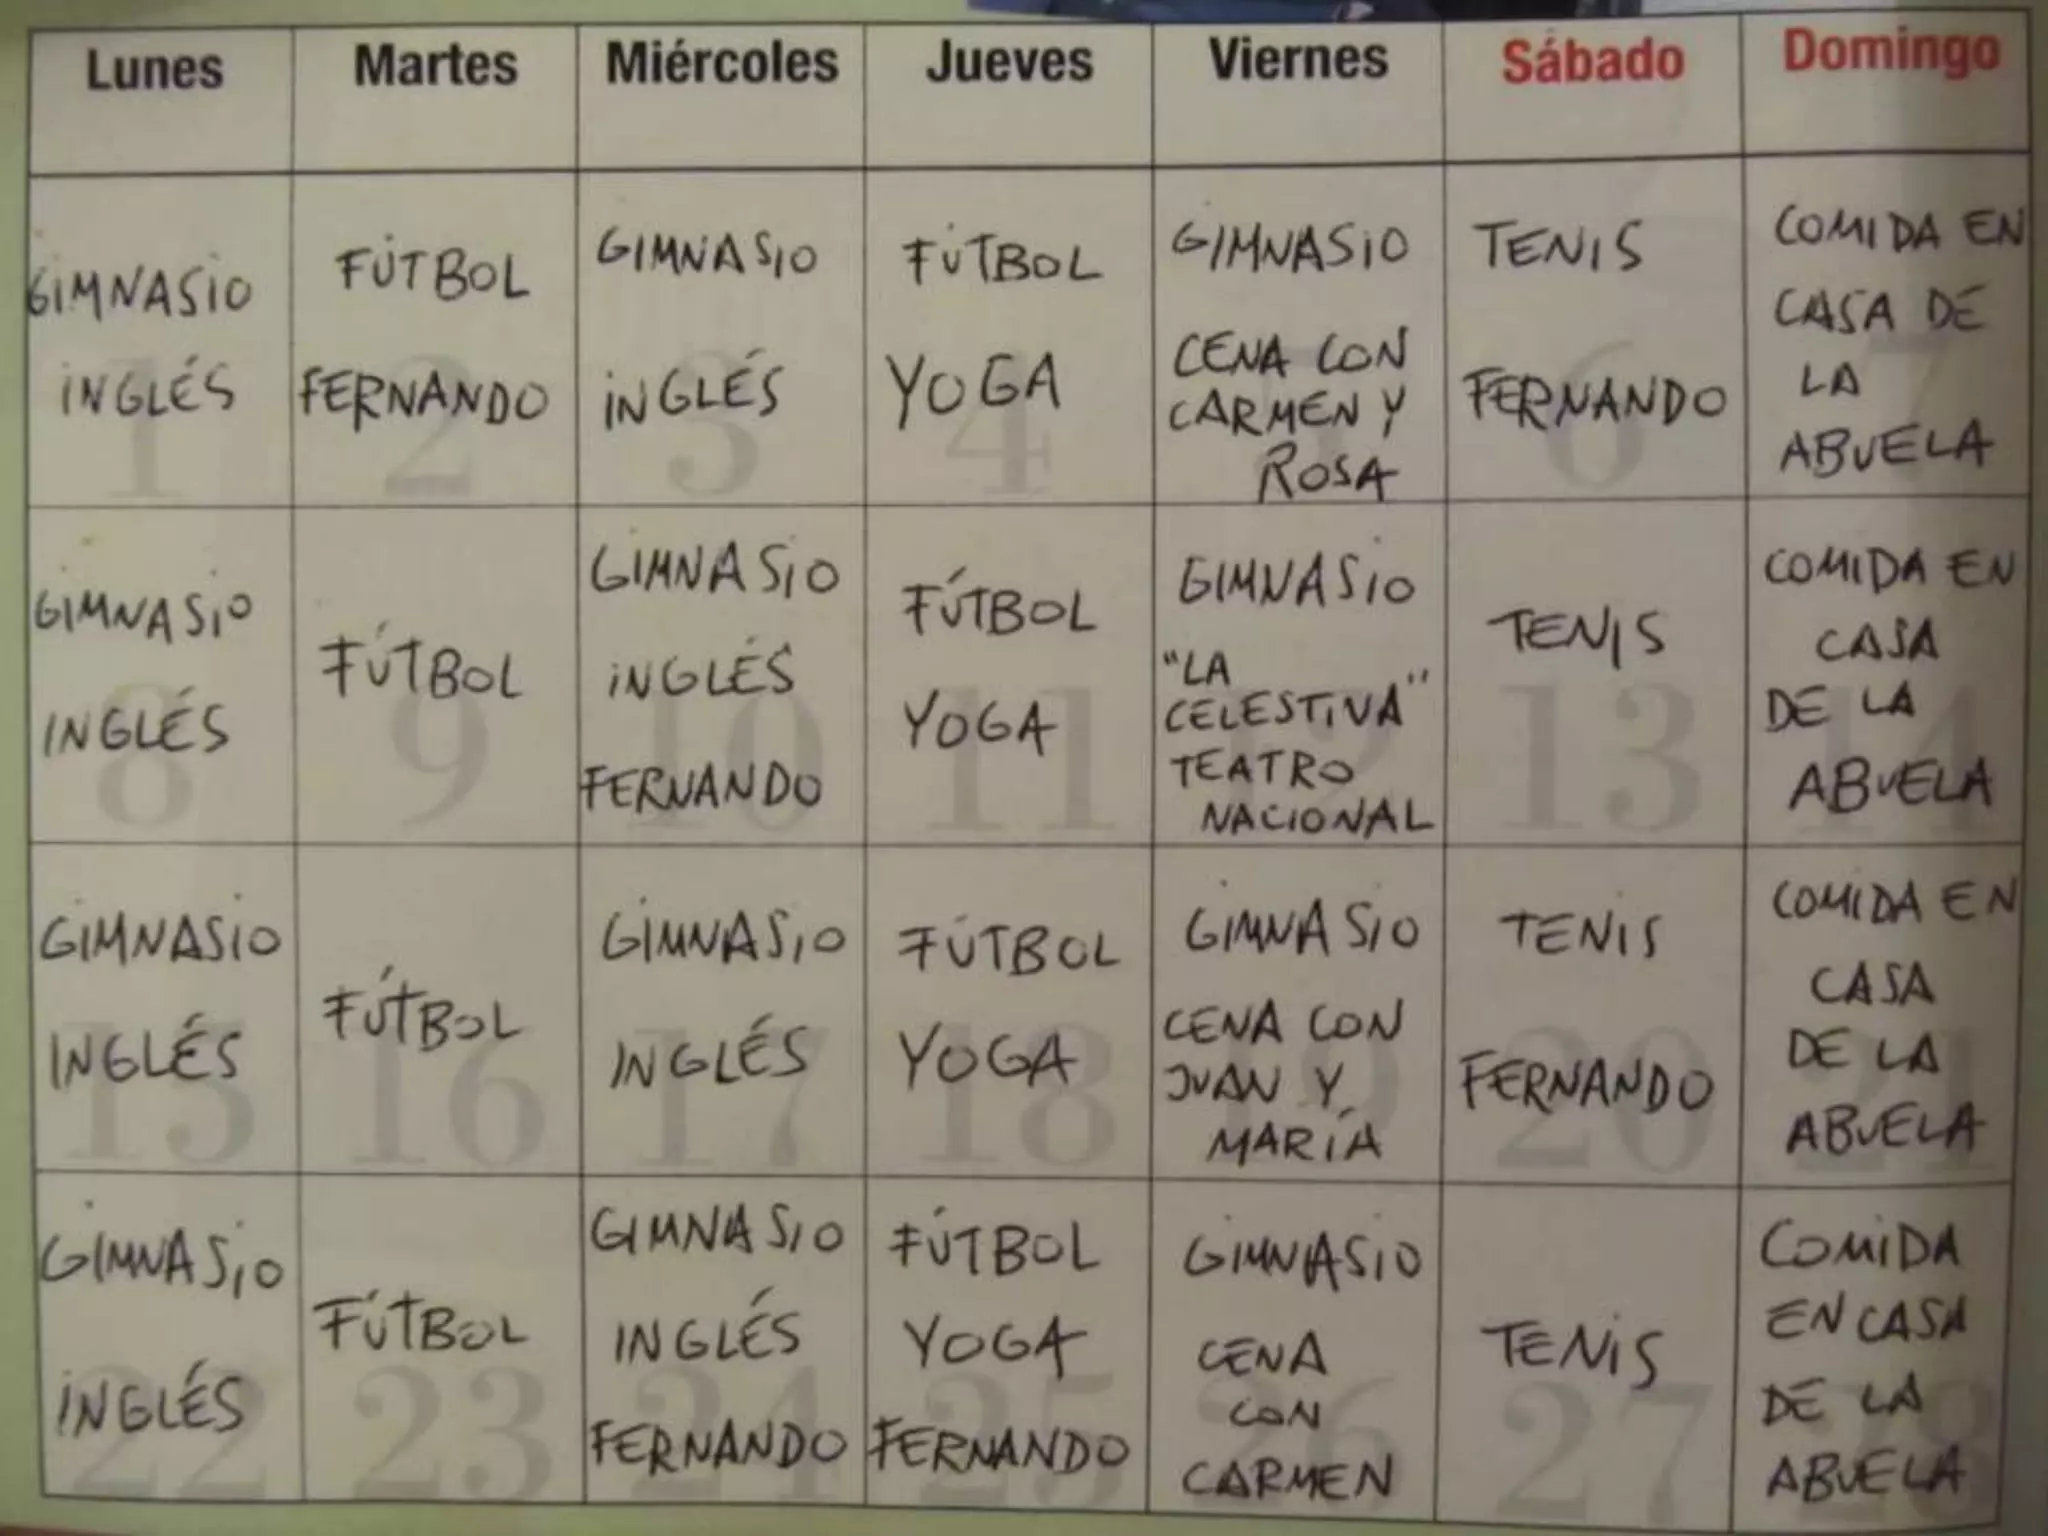 Lunes Martes Miércoles Jueves Viernes Sábado Domingo
GIMNASIO
INGLÉS
1
FÚTBOL
FERNANDO
2
GIMNASIO
INGLÉS
3
FÚTBOL
YOGA
4
GIMNASIO
CENA CON
CARMEN Y
ROSA
5
TENIS
FERNANDO
6
COMIDA EN
CASA DE
LA
ABUELA
7
GIMNASIO
INGLÉS
8
FÚTBOL
9
GIMNASIO
INGLÉS
FERNANDO
10
FÚTBOL
YOGA
11
GIMNASIO
"LA
CELESTINA"
TEATRO
NACIONAL
12
TENIS
13
COMIDA EN
CASA
DE LA
ABUELA
14
GIMNASIO
INGLÉS
15
FÚTBOL
16
GIMNASIO
INGLÉS
17
FÚTBOL
YOGA
18
GIMNASIO
CENA CON
JUAN Y
MARÍA
19
TENIS
FERNANDO
20
COMIDA EN
CASA
DE LA
ABUELA
21
GIMNASIO
INGLÉS
22
FÚTBOL
23
GIMNASIO
INGLÉS
FERNANDO
24
FÚTBOL
YOGA
FERNANDO
25
GIMNASIO
CENA
CON
CARMEN
26
TENIS
27
COMIDA
EN CASA
DE LA
ABUELA
28